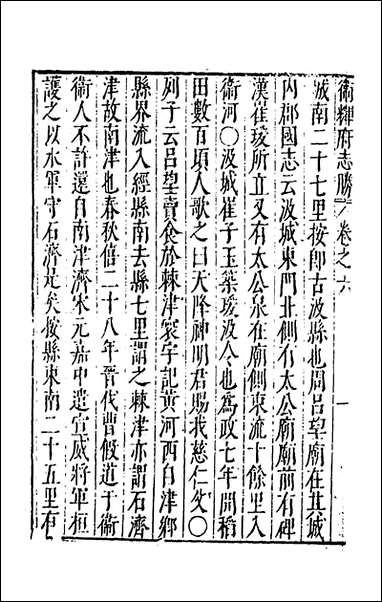 衛輝府志勝 卷之六 一
城南二十七里按即古汲縣也周呂望廟在其城
内郡國志云汲城東門北側有太公廟廟前有碑
漢崔瑗所立又有太公泉在廟側東流十餘里入
衛河〇汲城崔子玉築瑗汲令也爲政七年開稻
田數百頃人歌之曰天降神明君賜我慈仁父〇
列子云呂望賣食於棘津寰宇記黄河西自津鄉
縣界流入經縣南去縣七里謂之棘津亦謂石濟
津故南津也春秋僖二十八年晉代曹假道于衛
衛人不許還自南津濟宋元嘉中遣宣威將軍桓
護之以水軍守石濟是矣按縣東南二十五里有